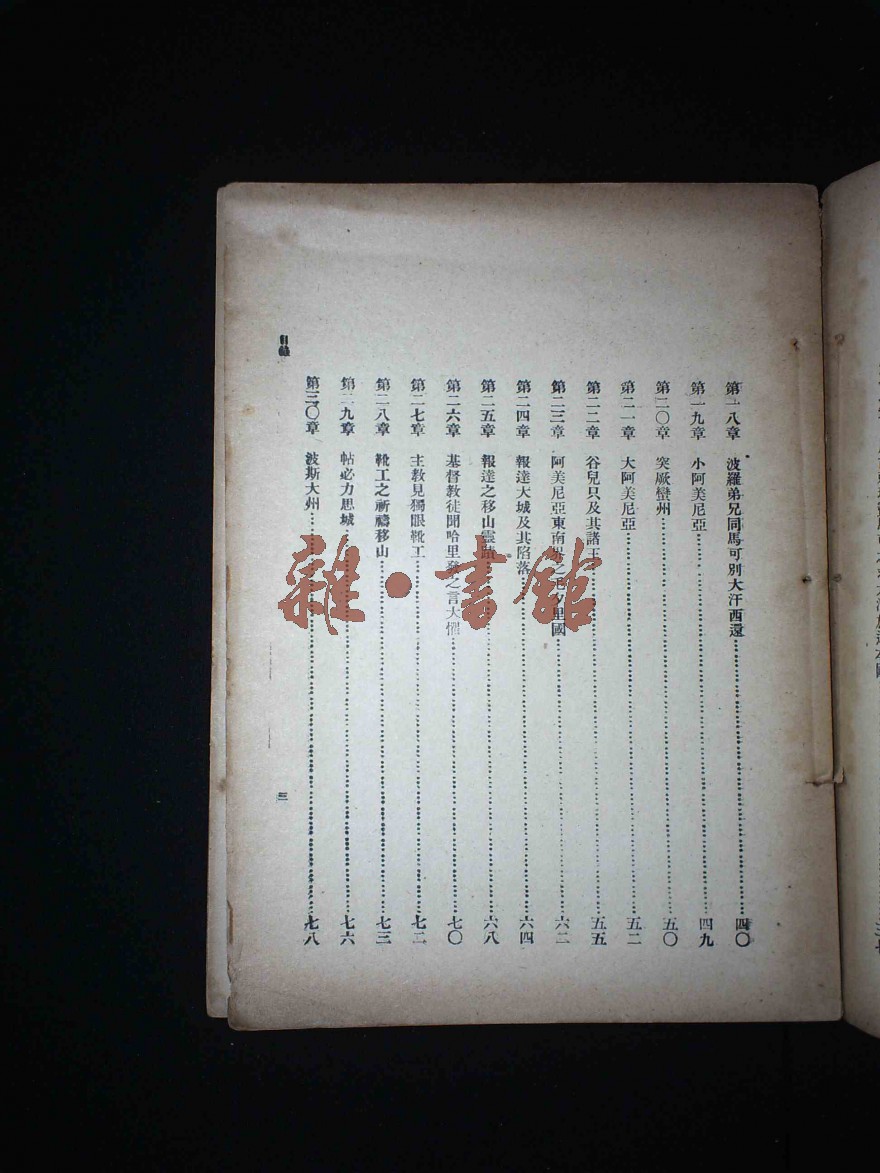 第一八章 波羅弟兄同馬可別大汗西還……四〇
第一九章 小阿美尼亞……四九
第二〇章 突厥蠻州……五〇
第二一章 大阿美尼亞……五二
第二二章 谷兒只及其諸王……五五
第二三章 阿美尼亞東南界之毛夕里國……六二
第二四章 報達大城及其陷落……六四
第二五章 報達之移山靈蹟……六八
第二六章 基督教徒聞哈里發之言大懼……七〇
第二七章 主教見獨眼靴工……七二
第二八章 靴工之祈禱移山……七三
第二九章 帖必力思城……七六
第三〇章 波斯大州……七八
目錄
三
雜·書館